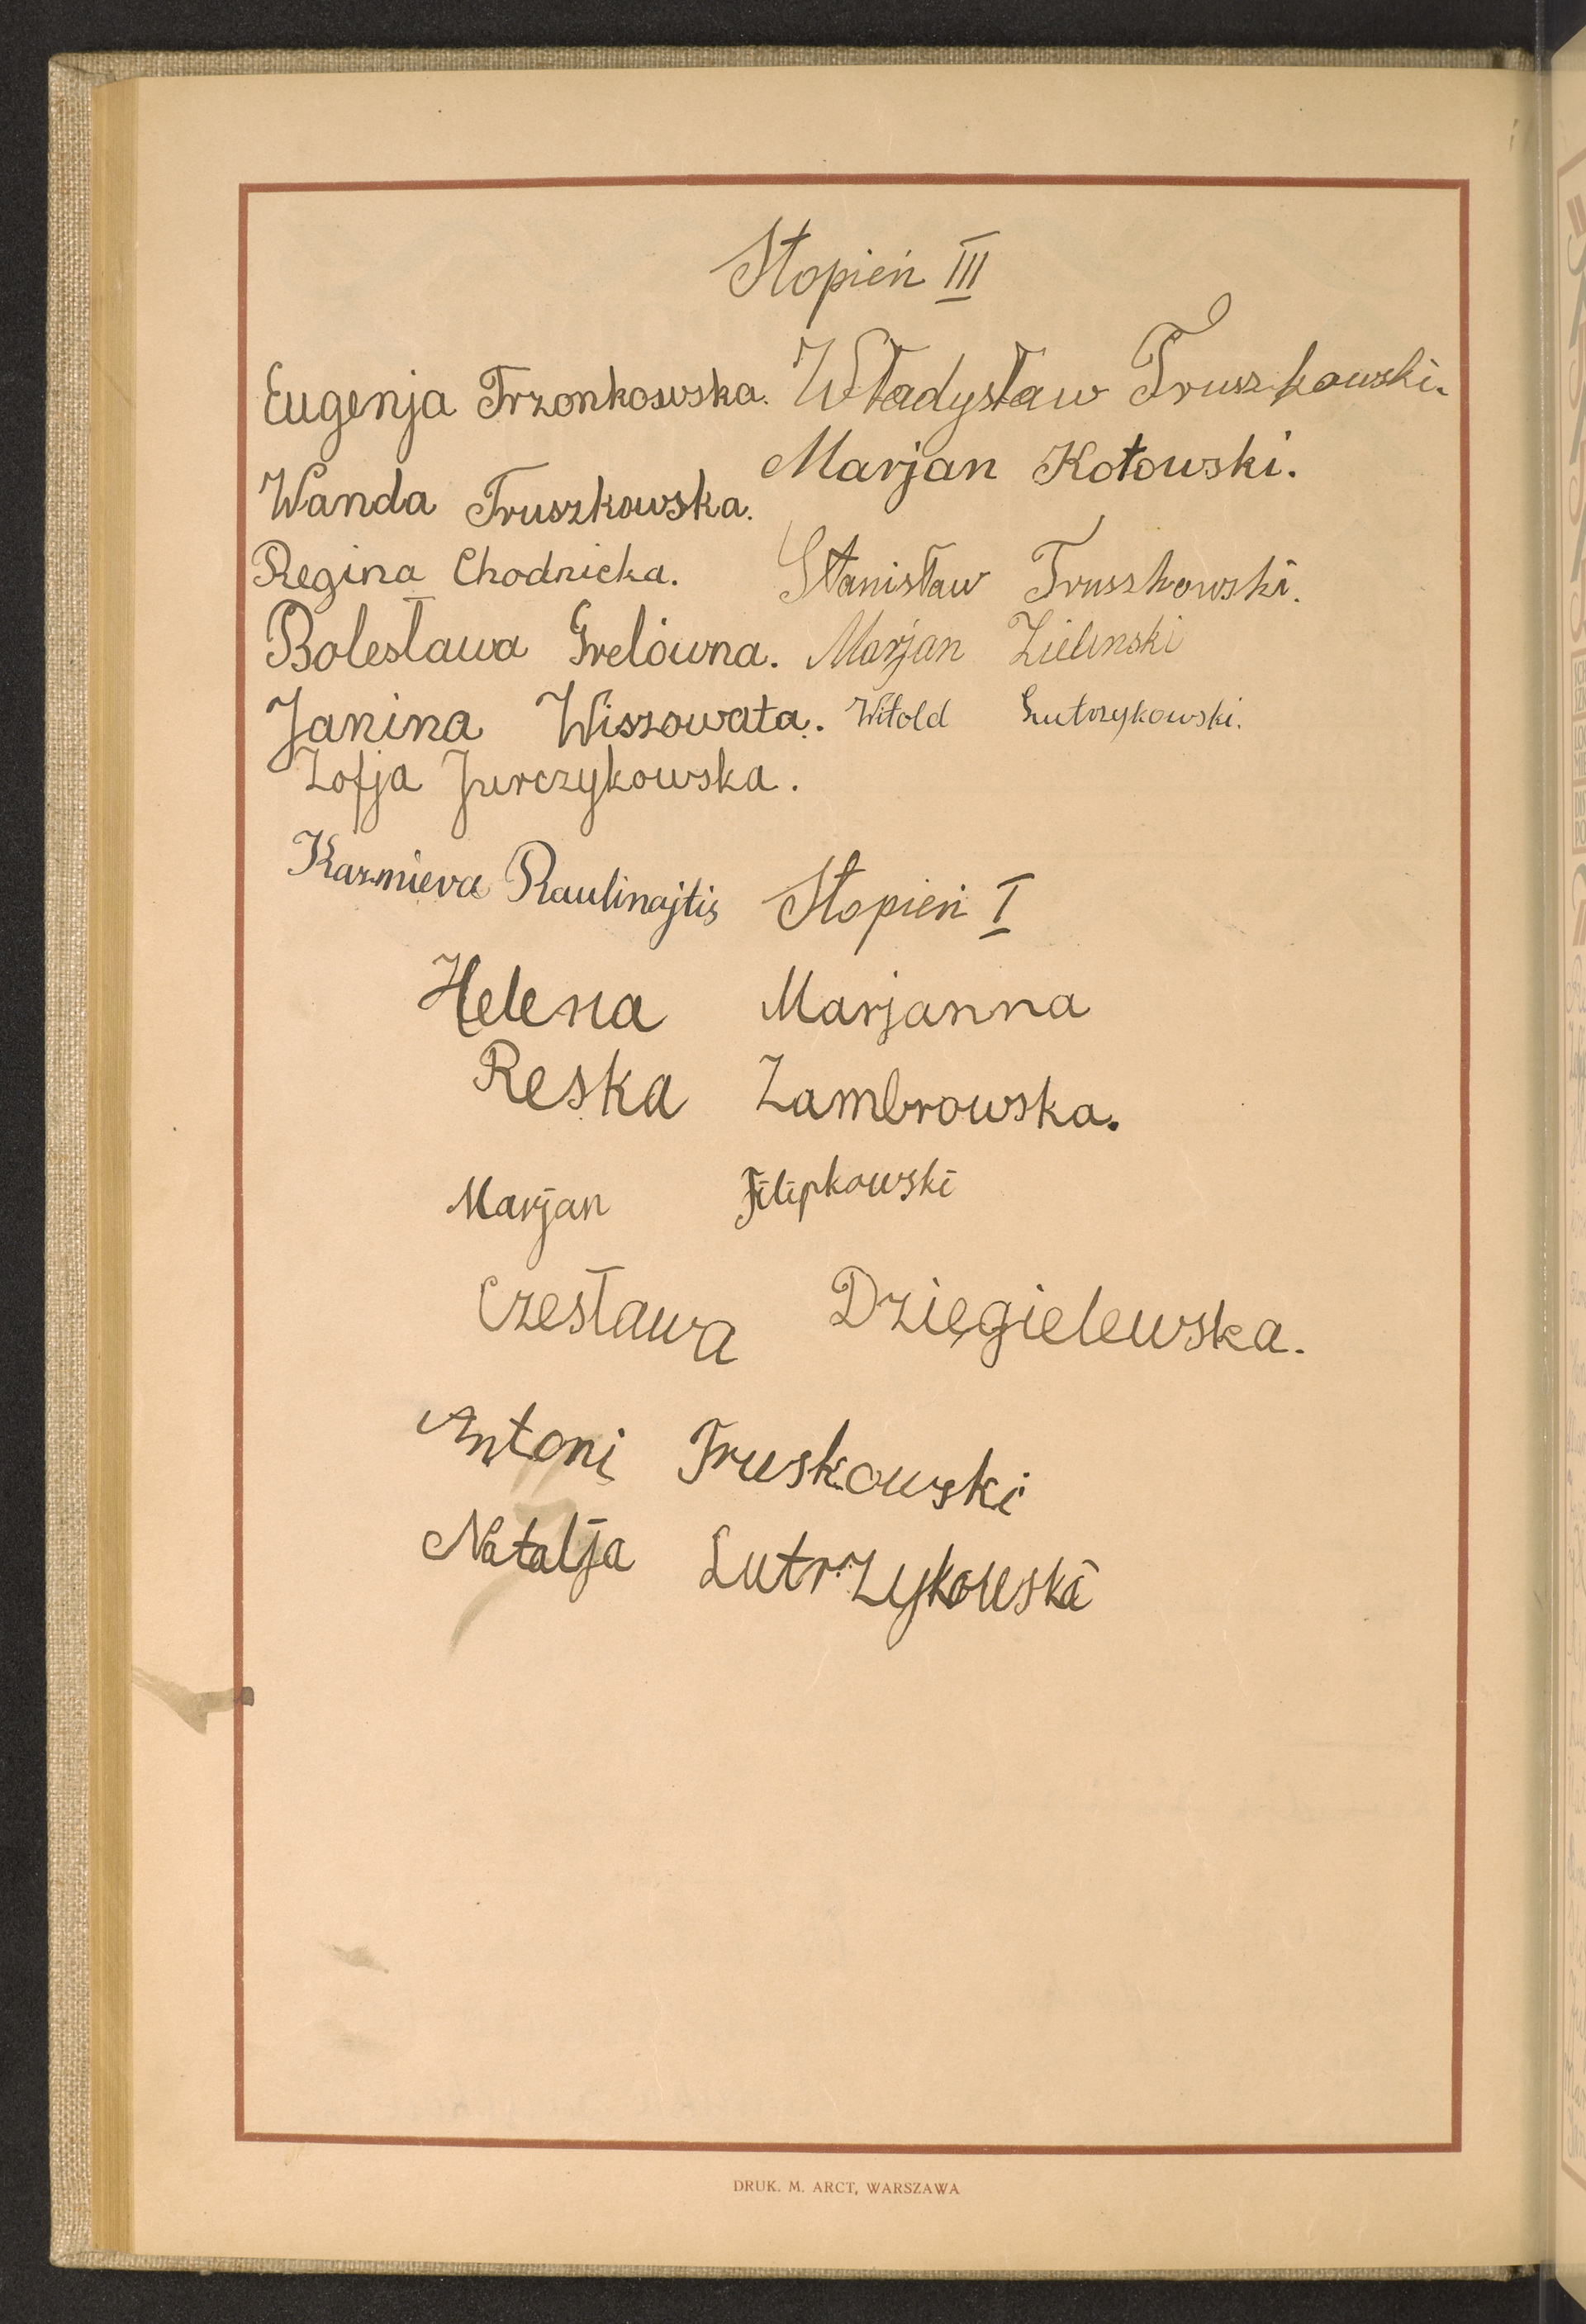 Stopień III
Eugenja Trzonkowska. Władysław Truszkowski.
Marjan Kotowski.
Wanda Truszkowska.
Regina Chodnicka. Stanisław Truszkowski.
Bolesława Grelówna. Marjan Zielinski
Janina Wiszowata. Witold Lutrzykowski.
Zofja Jurczykowska.
Kazmiera Raulinajtis Stopień I
Helena Marjanna
Reska Zambrowska.
Marjan Filipkowski
Czesława Dzięgielewska.
Antoni Truskowski
Natalja Lutrzykowska
DRUK. M. ARCT, WARSZAWA